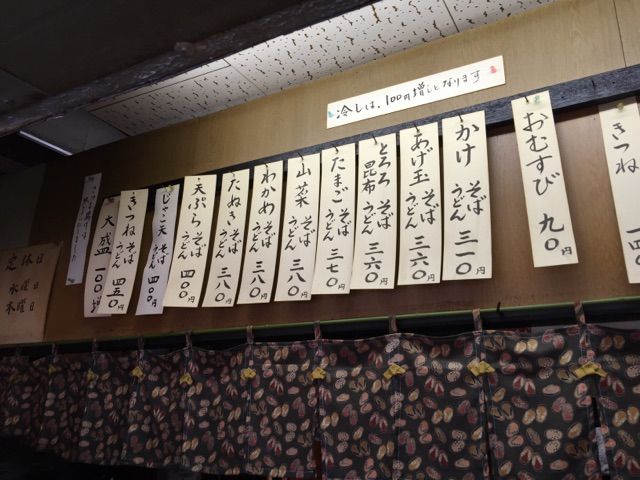 冷しは、100円増しとなります
きつね
おむすび 九〇円
かけ そば うどん 三一〇円
あげ玉 そば うどん 三六〇円
とろろ昆布 そば うどん 三六〇円
たまご そば うどん 三七〇円
山菜 そば うどん 三八〇円
わかめ そば うどん 三八〇円
たぬき そば うどん 三八〇円
天ぷら そば うどん 四〇〇円
じゃこ天 そば うどん 四〇〇円
きつね そば うどん 四五〇円
大盛 一〇〇円
定休日
水曜日
木曜日